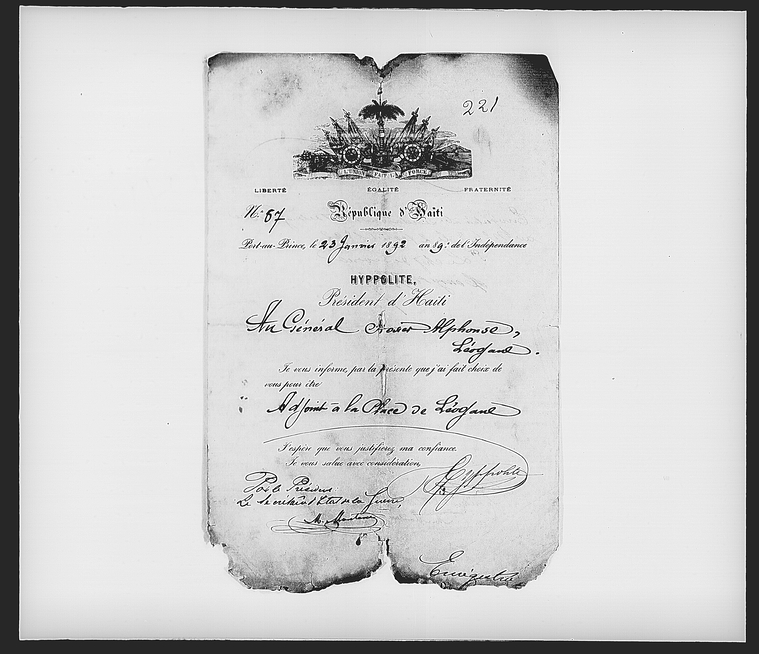 221
L'UNION FAIT LA FORCE
LIBERTÉ ÉGALITÉ FRATERNITÉ
N.º 87 République d'Haïti
Port-au-Prince, le 23 Janvier 1892 an 89.e de l'Indépendance
HYPPOLITE,
Président d'Haïti
Au Général Alphonse,
Léogane.
Je vous informe, par la présente que j'ai fait choix de
vous pour être
Adjoint à la Place de Léogane
J'espère que vous justifierez ma confiance.
Je vous salue avec considération,
Hyppolite
Par le Président
Le Secrétaire d'Etat de la Guerre,
Enregistré